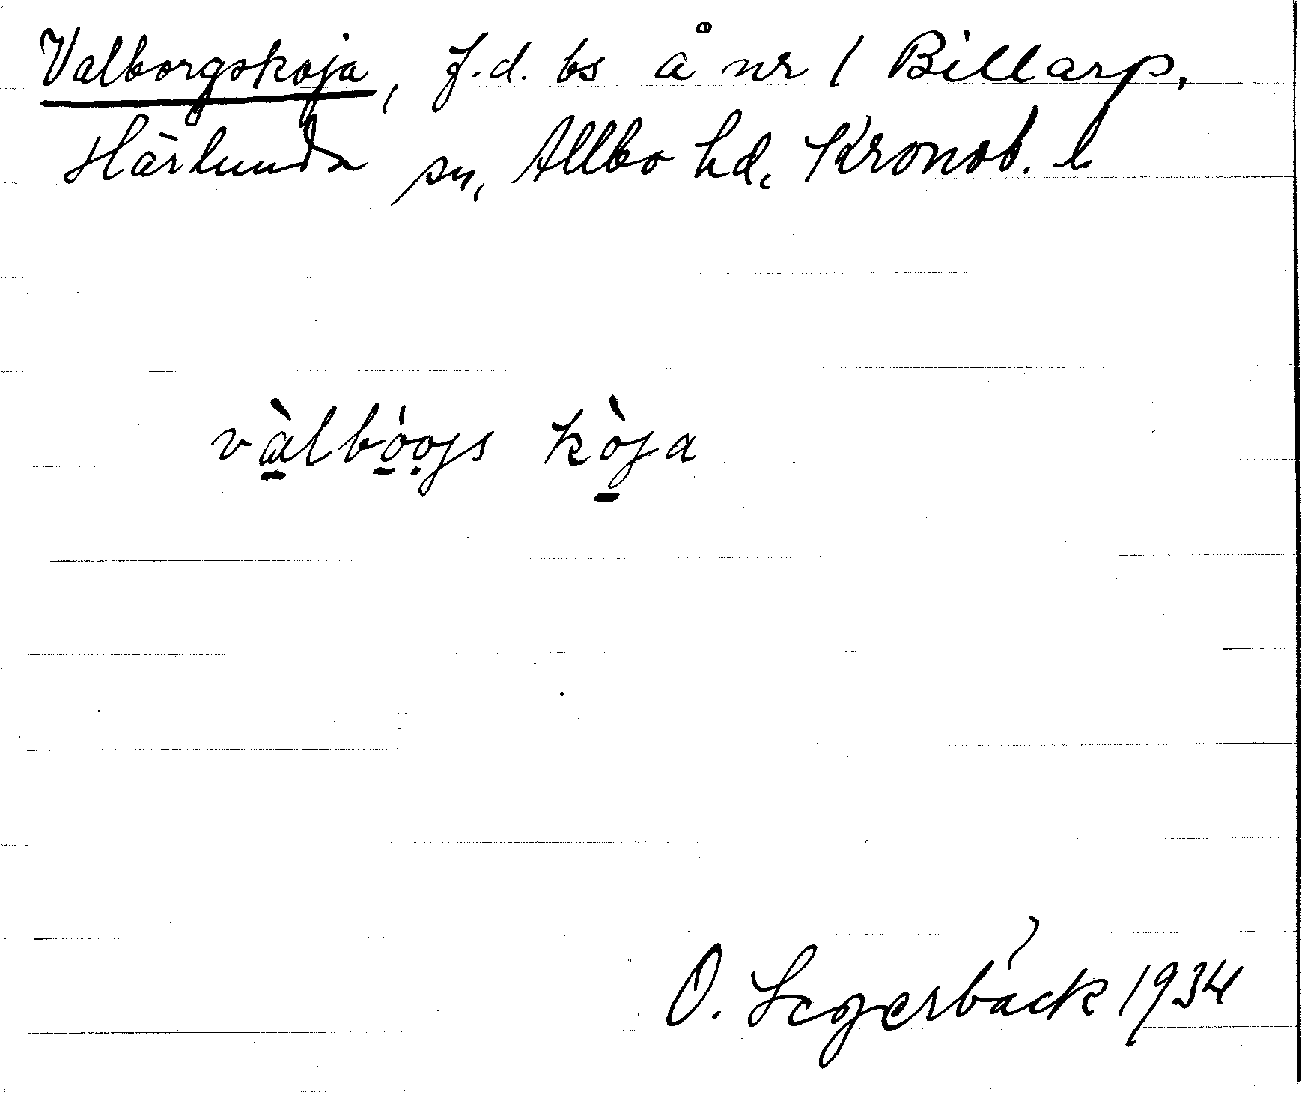 Valborgskoja, f.d. bs å nr 1 Billarp,
Härlunda sn, Allbo hd, Kronob. l
vàlbóọjs kòja
O. Segerbäck 1934